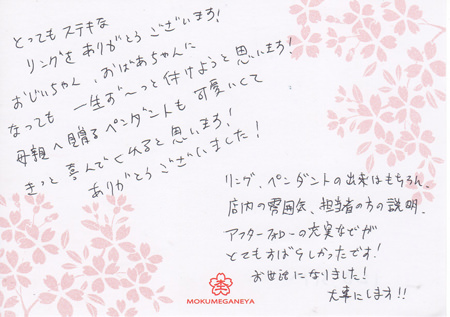 とってもステキな
リングをありがとうございます!
おじいちゃん、おばあちゃんに
なっても一生ず〜っと付けようと思います!
母親へ贈るペンダントも可愛いくて
きっと喜んでくれると思います!
ありがとうございました!
リング、ペンダントの出来はもちろん、
店内の雰囲気、担当者の方の説明、
アフターフォローの充実などが
とてもすばらしかったです!
お世話になりました!
大事にします!!
MOKUMEGANEYA